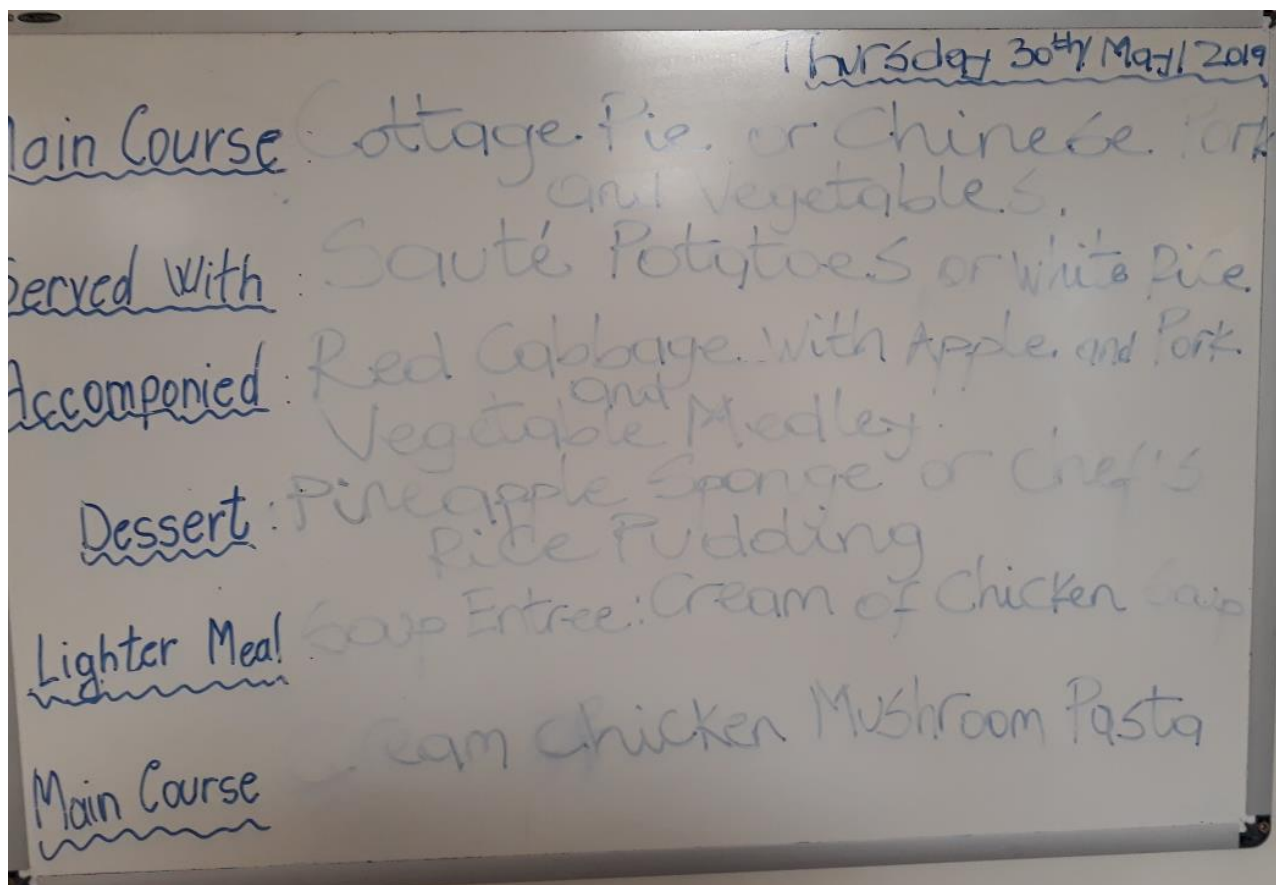 Thursday 30th/May/2019
Main Course: Cottage Pie or Chinese Pork
and Vegetables.
Served With: Sauté Potatoes or White Rice
Accomponied: Red Cabbage with Apple and Pork
and
Vegetable Medley.
Dessert: Pineapple Sponge or Chef's
Rice Pudding
Lighter Meal: Soup Entree: Cream of Chicken Soup
Cream Chicken Mushroom Pasta
Main Course